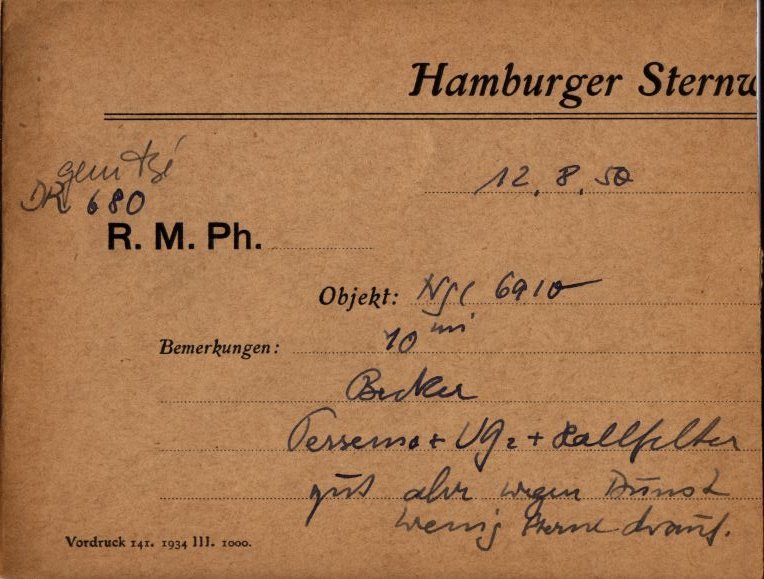 Hamburger Sternw
12. 8. 50
DR 680
R. M. Ph.
Objekt: Ngc 6910
Bemerkungen: 10 mi
Becker
+ UG 2 + Hallfilter
gut aber wegen Dunst
wenig Sterne drauf.
Vordruck 141. 1934 III. 1000.